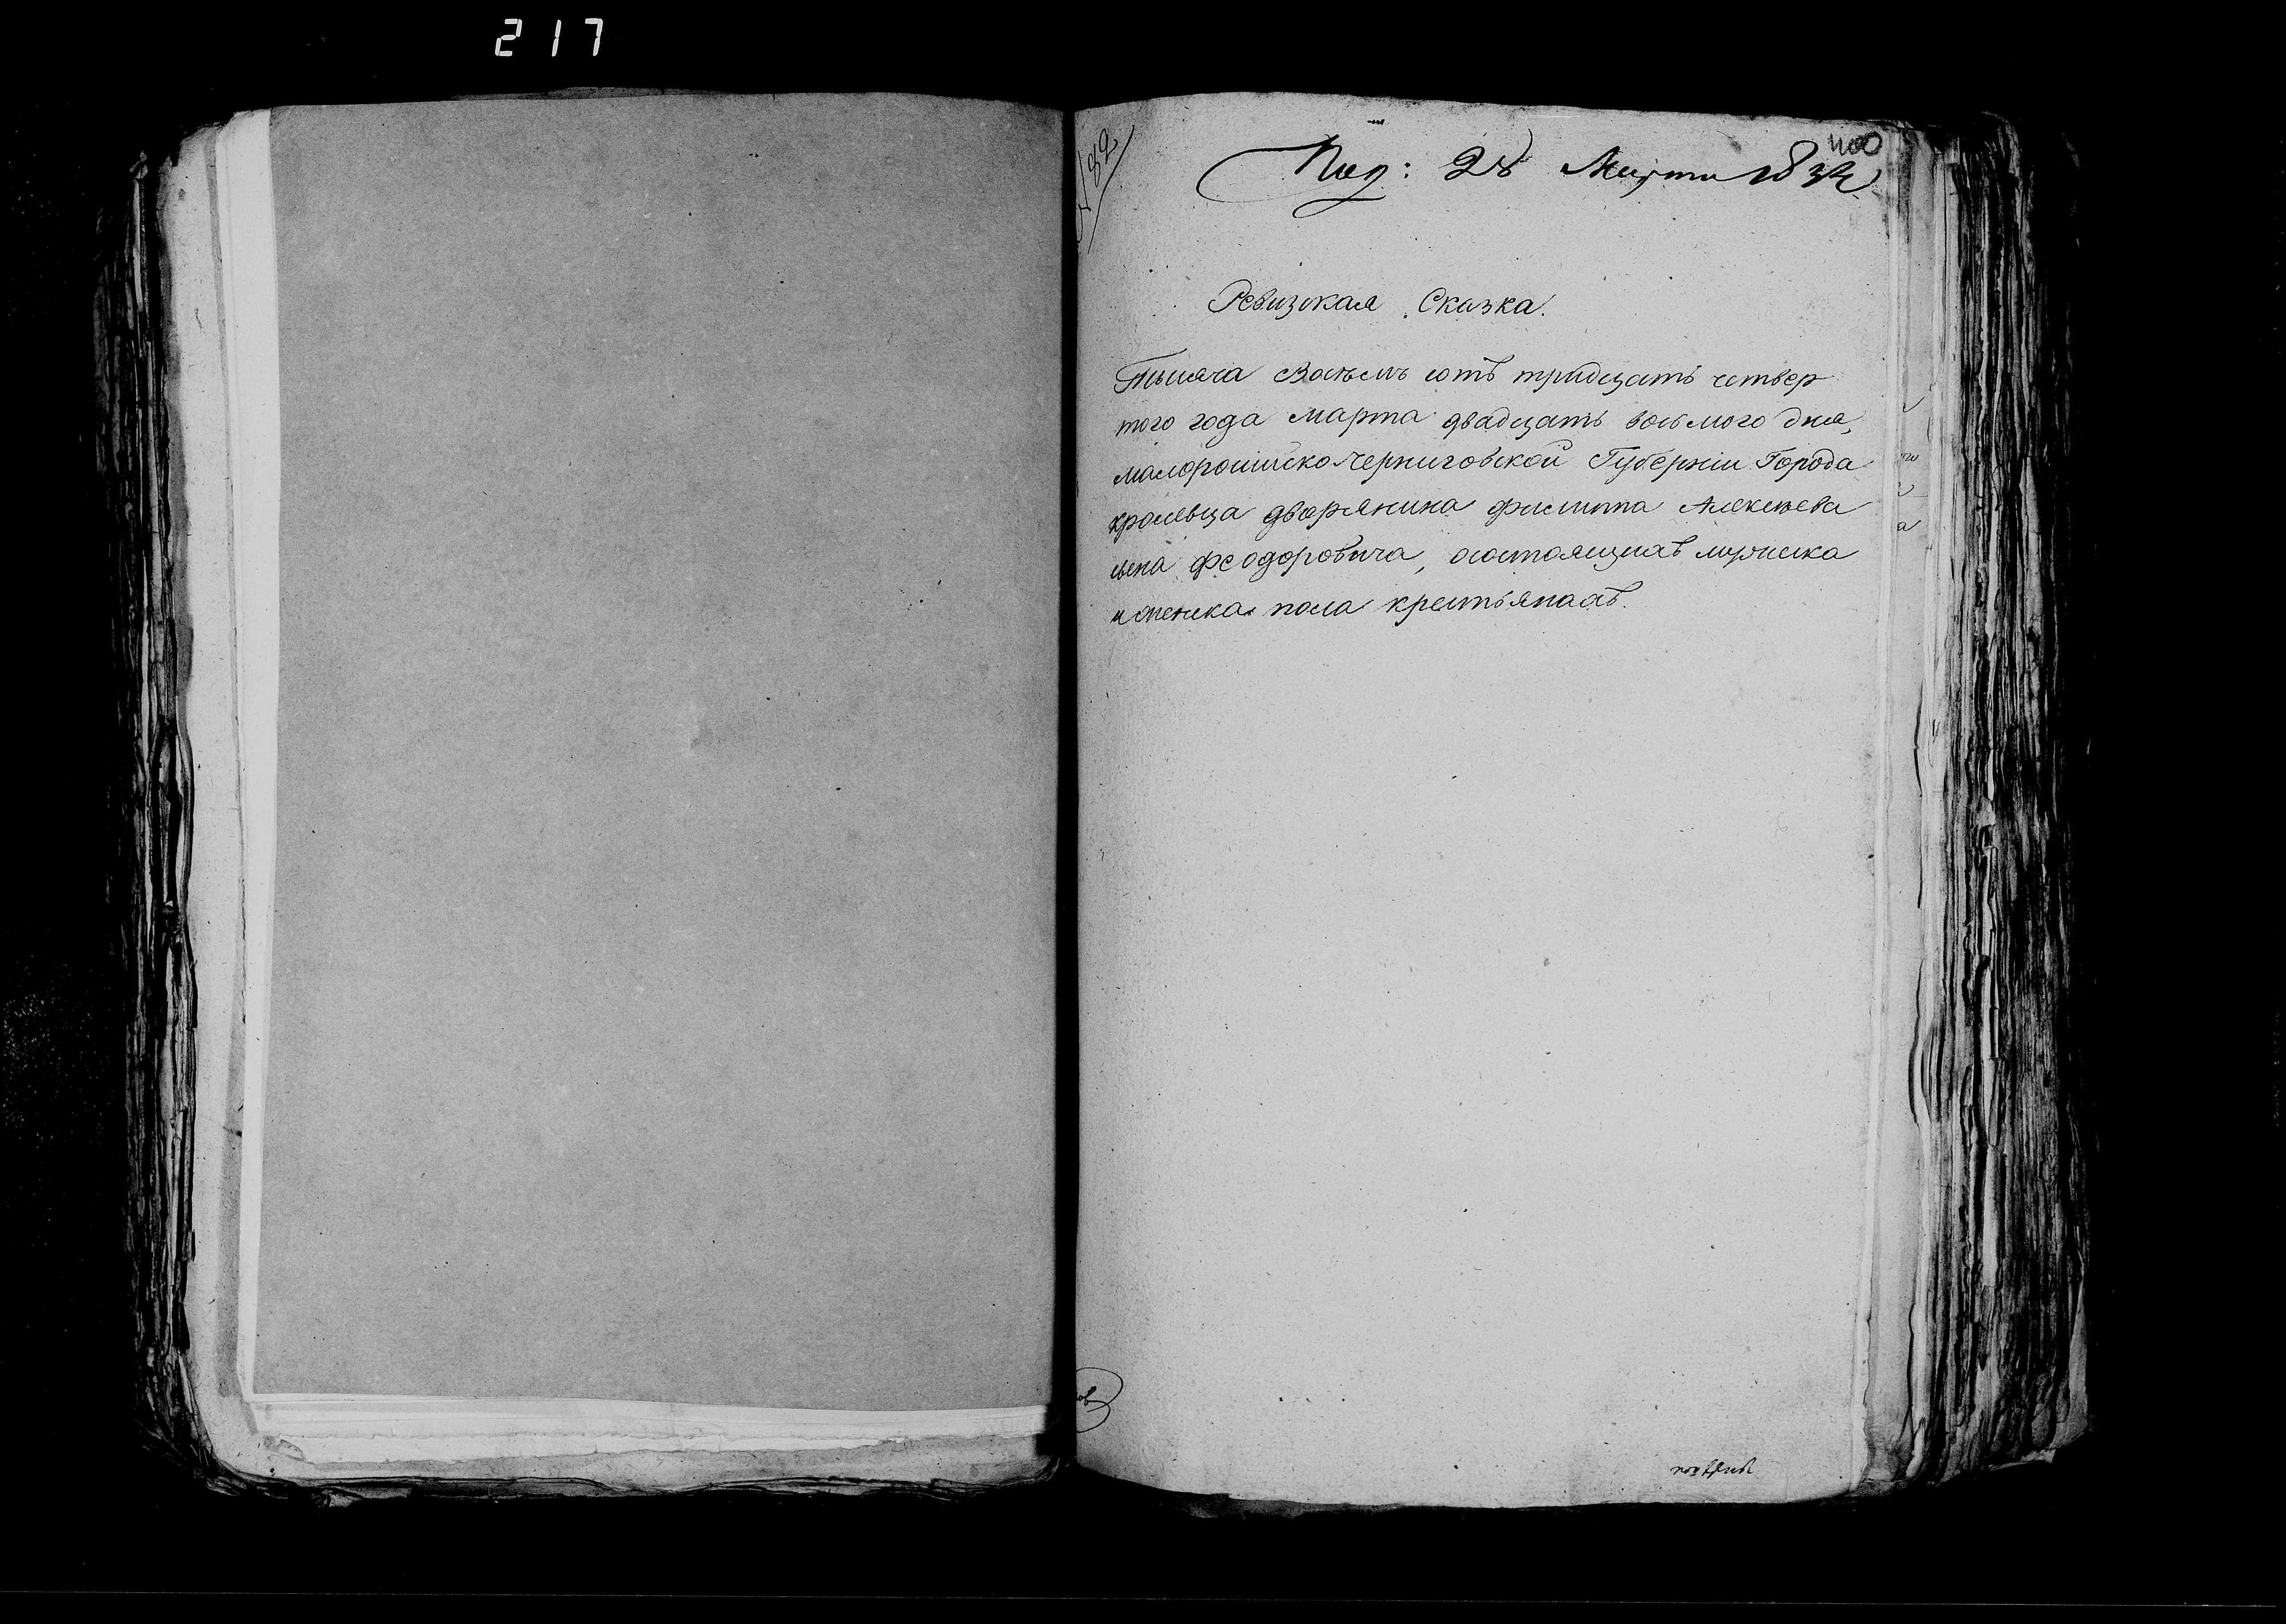 217
182
400
Под: 28 Марта 1834
Ревизская Сказка.
Тысяча Восемь сотъ тридцать четвер
того года марта двадцать восьмого дня,
малоросійско Черниговской Губерніи Города
кролевца дворянина филиппа Алексѣева
сына феодоровича, осостоящихъ мужска
и женска пола крестьянахъ.